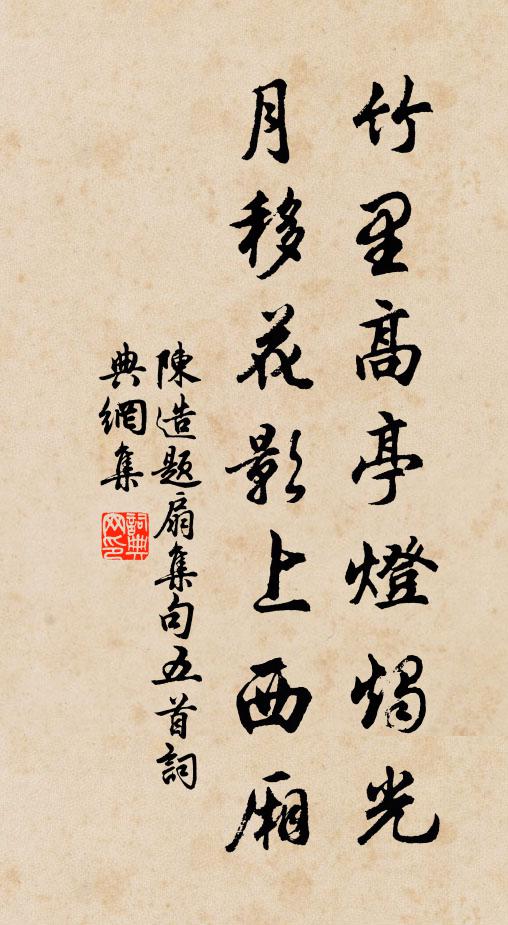 竹里高亭燈燭光
月移花影上西廂
陳造题扇集句五首詞
典網集
詞典
网印